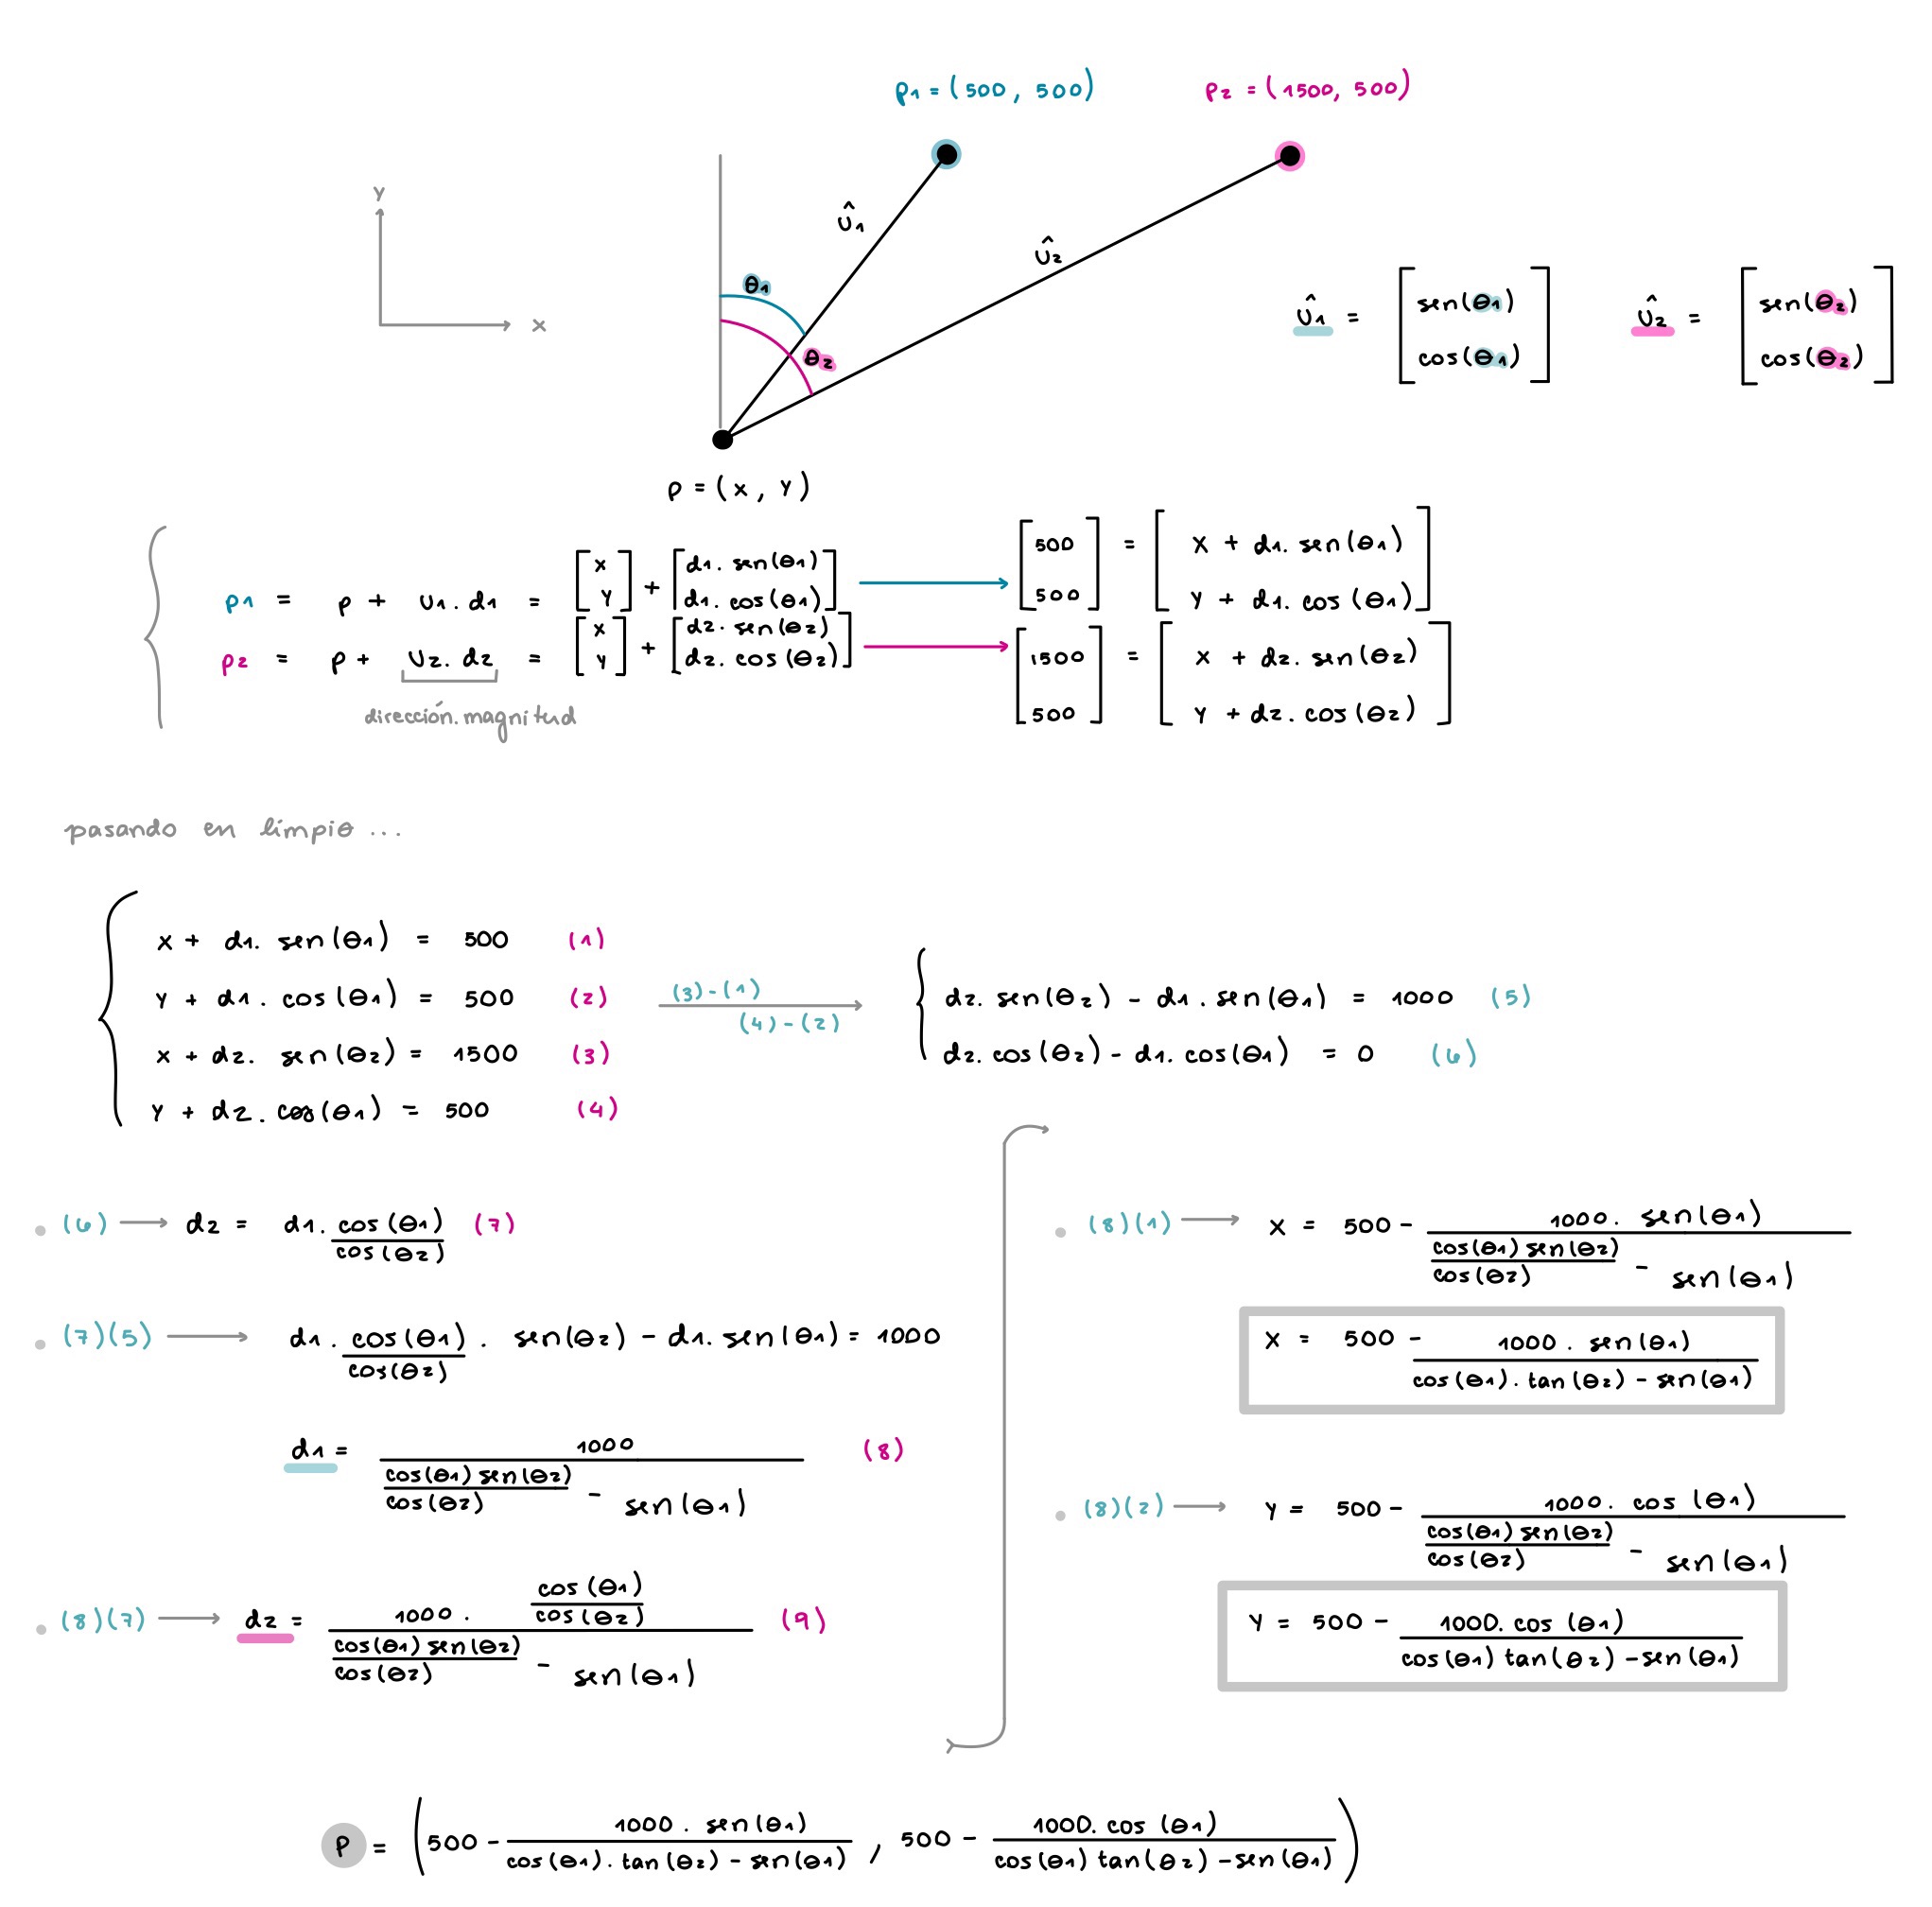 P1 = (500, 500)
P2 = (1500, 500)
Y
X
û1
û2
θ1
θ2
û1 = [sen(θ1) cos(θ1)]
û2 = [sen(θ2) cos(θ2)]
P = (x, y)
P1 = P + U1 . d1 = [x y] + [d1. sen(θ1) d1. cos(θ1)] → [500 500] = [x + d1. sen(θ1) y + d1. cos(θ1)]
P2 = P + U2. d2 = [x y] + [d2. sen(θ2) d2. cos(θ2)] → [1500 500] = [x + d2. sen(θ2) y + d2. cos(θ2)]
dirección.magnitud
pasando en limpio ...
x + d1. sen(θ1) = 500 (1)
y + d1. cos(θ1) = 500 (2)
x + d2. sen(θ2) = 1500 (3)
y + d2. cos(θ1) = 500 (4)
(3)-(1)
(4)-(2)
d2. sen(θ2) - d1. sen(θ1) = 1000 (5)
d2. cos(θ2) - d1. cos(θ1) = 0 (6)
• (6) → d2 = d1. cos(θ1) / cos(θ2) (7)
• (7)(5) → d1 . cos(θ1) / cos(θ2) . sen(θ2) - d1. sen(θ1) = 1000
d1 = 1000 / (cos(θ1) sen(θ2) / cos(θ2) - sen(θ1)) (8)
• (8)(7) → d2 = 1000 . cos(θ1) / cos(θ2) / (cos(θ1) sen(θ2) / cos(θ2) - sen(θ1)) (9)
• (8)(1) → x = 500 - 1000. sen(θ1) / (cos(θ1) sen(θ2) / cos(θ2) - sen(θ1))
x = 500 - 1000 . sen(θ1) / (cos(θ1). tan(θ2) - sen(θ1))
• (8)(2) → y = 500 - 1000. cos(θ1) / (cos(θ1) sen(θ2) / cos(θ2) - sen(θ1))
y = 500 - 1000. cos(θ1) / (cos(θ1) tan(θ2) - sen(θ1))
P = (500 - 1000 . sen(θ1) / (cos(θ1). tan(θ2) - sen(θ1)), 500 - 1000. cos(θ1) / (cos(θ1) tan(θ2) - sen(θ1)))